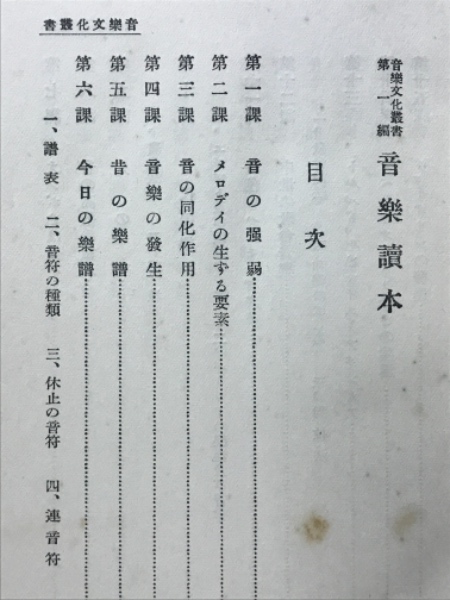 書叢化文樂音
音樂文化叢書
第一編
音樂讀本
目次
第一課 音の强弱
第二課 メロデイの生ずる要素
第三課 音の同化作用
第四課 音樂の發生
第五課 昔の樂譜
第六課 今日の樂譜
一、譜表 二、音符の種類 三、休止の音符 四、連音符